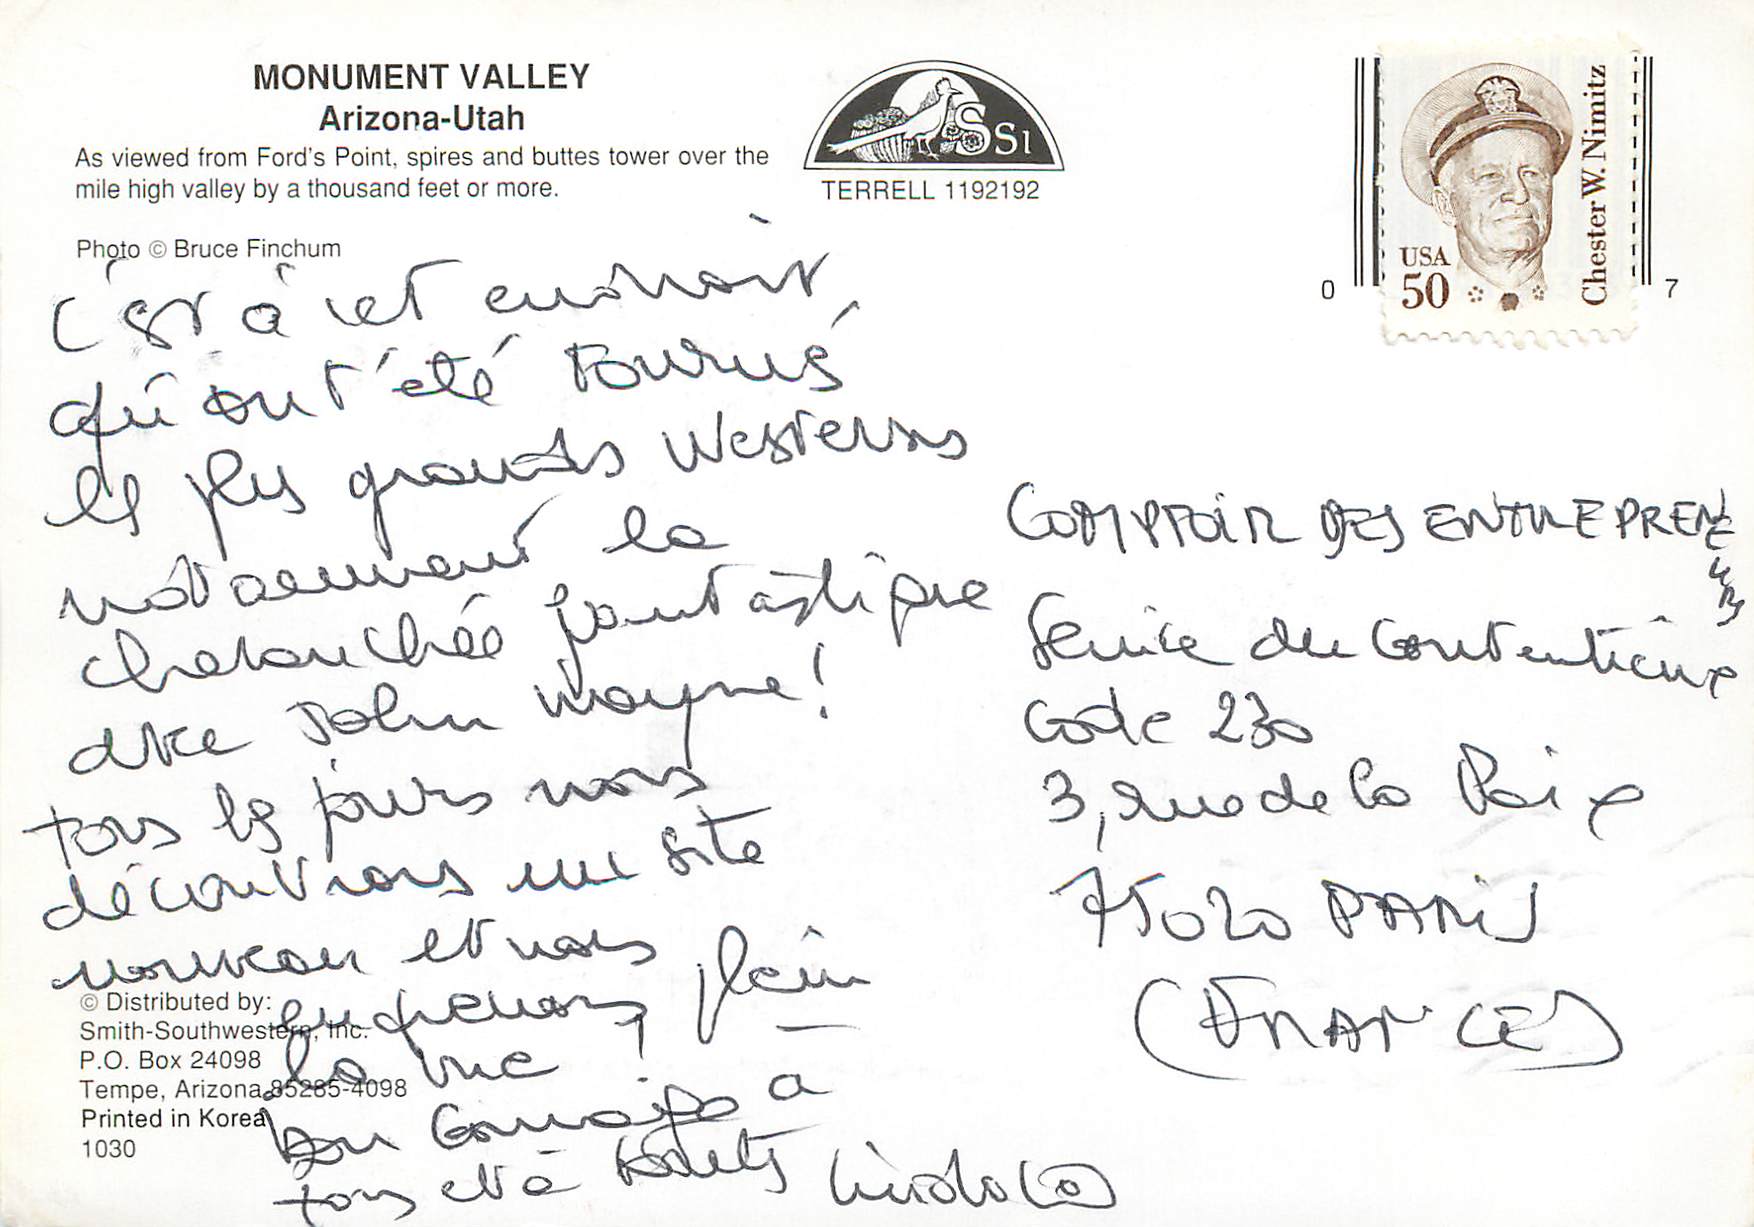 MONUMENT VALLEY
Arizona-Utah
As viewed from Ford's Point, spires and buttes tower over the
mile high valley by a thousand feet or more.
Photo © Bruce Finchum
SSI
TERRELL 1192192
USA
50
Chester W. Nimitz
0
7
C'est à cet endroit
qui ont été tournés
les plus grands Westerns
notamment la
chevauchée fantastique
avec John Wayne!
tous les jours nous
découvrons un site
nouveau et nous
en prenons plein
la vue!
bon courage à
tous et à toutes
COMPTOIR DES ENTREPRENEURS
Service du Contentieux
Code 230
3, rue de la Paix
75020 PARIS
(FRANCE)
© Distributed by:
Smith-Southwestern, Inc.
P.O. Box 24098
Tempe, Arizona 85285-4098
Printed in Korea
1030